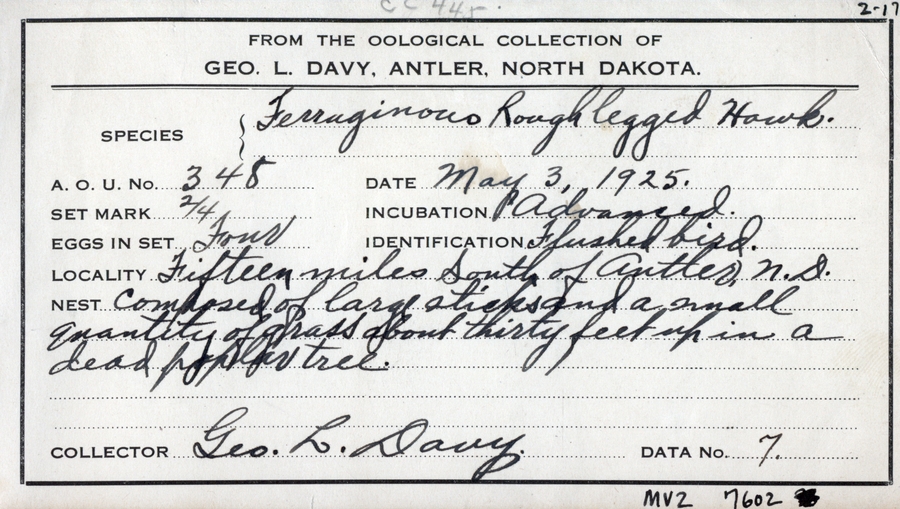 CC 445
2-17
FROM THE OOLOGICAL COLLECTION OF
GEO. L. DAVY, ANTLER, NORTH DAKOTA.
SPECIES { Ferruginous Rough legged Hawk.
A. O. U. No. 348 DATE May 3, 1925.
SET MARK 2/4 INCUBATION Advanced.
EGGS IN SET Four IDENTIFICATION Flushed bird.
LOCALITY Fifteen miles South of Antler, N.D.
NEST Composed of large sticks and a small
quantity of grass about thirty feet up in a
dead poplar tree.
COLLECTOR Geo. L. Davy. DATA No. 7.
MVZ 7602